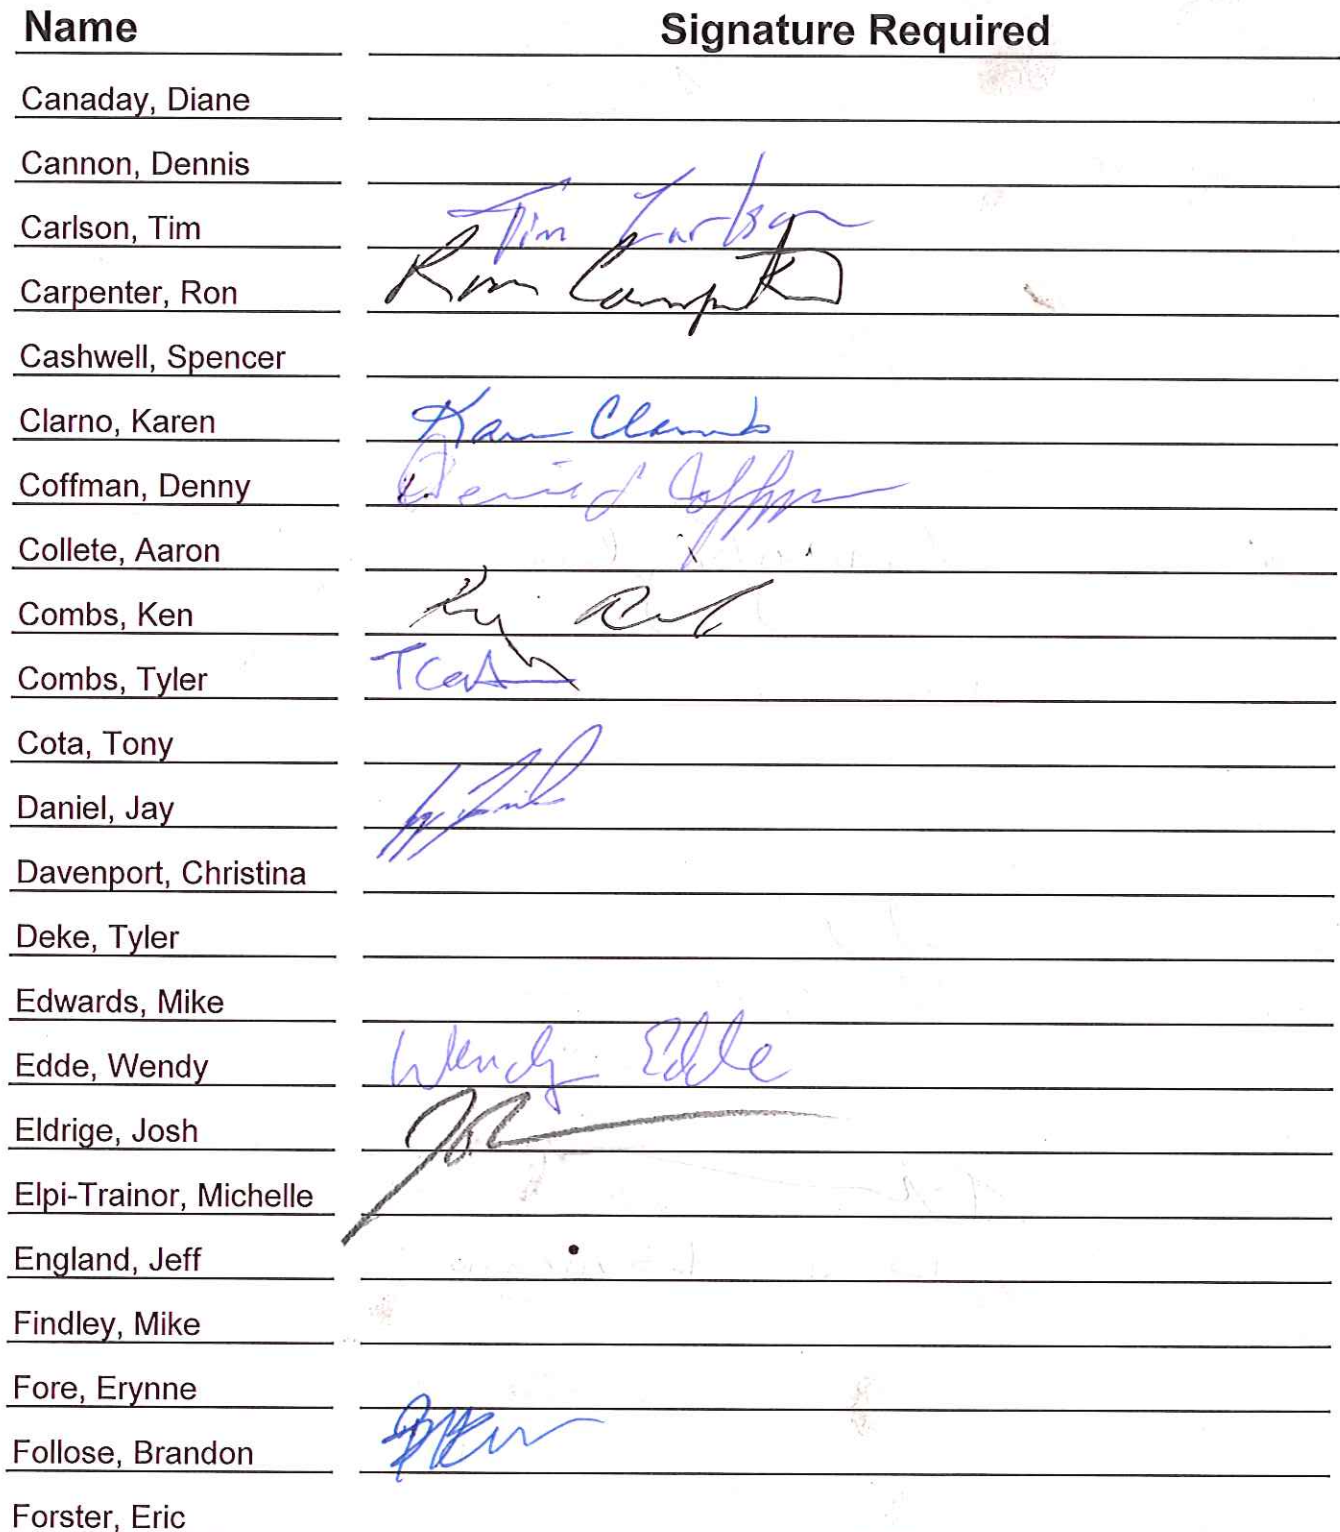 Name Signature Required
Canaday, Diane
Cannon, Dennis
Carlson, Tim Tim Carlson
Carpenter, Ron Ron
Cashwell, Spencer
Clarno, Karen Karen Clarno
Coffman, Denny Coffman
Collete, Aaron
Combs, Ken
Combs, Tyler
Cota, Tony
Daniel, Jay
Davenport, Christina
Deke, Tyler
Edwards, Mike
Edde, Wendy Wendy Edde
Eldrige, Josh
Elpi-Trainor, Michelle
England, Jeff
Findley, Mike
Fore, Erynne
Follose, Brandon
Forster, Eric